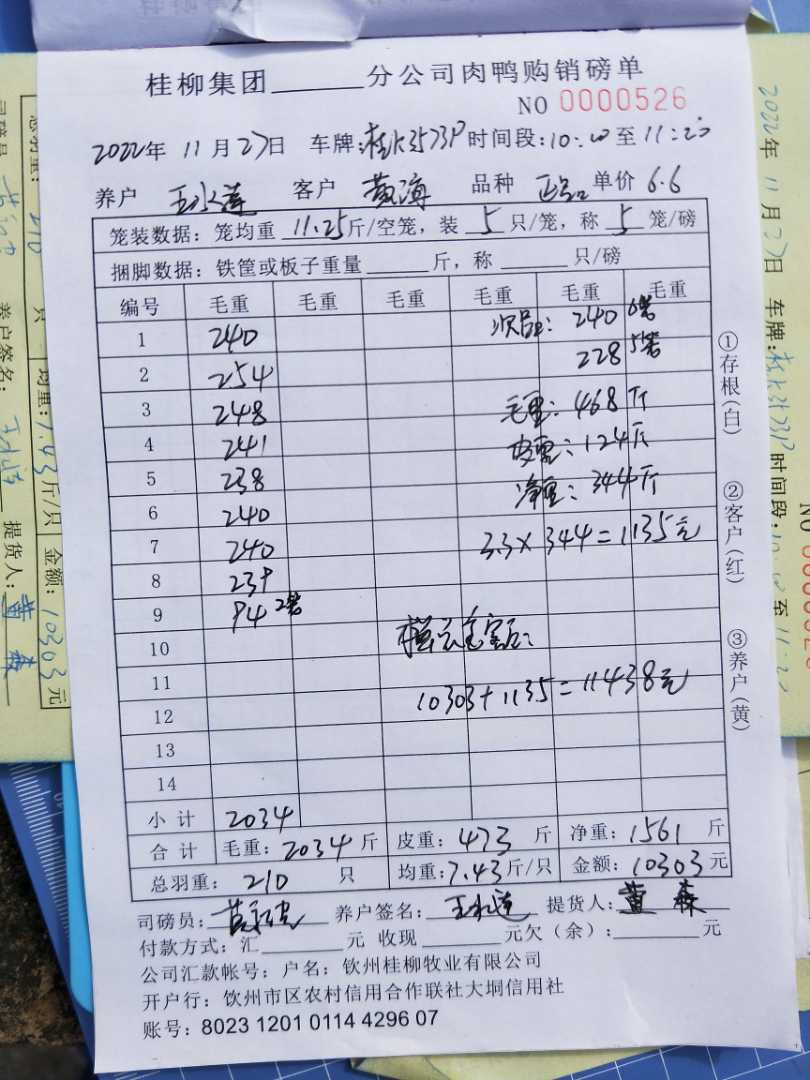 桂柳集团______分公司肉鸭购销磅单
NO 0000526
2022年 11月27日 车牌: 时间段:10:20至11:20
养户 王水莲 客户 黄海 品种 正品 单价 6.6
笼装数据:笼均重 11.25 斤/空笼,装 5 只/笼,称 5 笼/磅
捆脚数据:铁筐或板子重量______斤,称______只/磅
编号 毛重 毛重 毛重 毛重 毛重 毛重
1 240 次品: 240 6笼
2 254 228 5笼
3 248 毛重: 468斤
4 241 皮重: 124斤
5 238 净重: 344斤
6 240
7 240 3.3×344=1135元
8 239
9 94 2笼
10
11
12 10303+1135=11438元
13
14
小计 2034
合计 毛重: 2034 斤 皮重: 473 斤 净重: 1561 斤
总羽重: 210 只 均重: 7.43 斤/只 金额: 10303 元
司磅员: 养户签名: 王水莲 提货人: 黄森
付款方式:汇______元 收现______元欠(余):______元
公司汇款帐号:户名:钦州桂柳牧业有限公司
开户行:钦州市区农村信用合作联社大垌信用社
账号:8023 1201 0114 4296 07
①存根(白) ②客户(红) ③养户(黄)